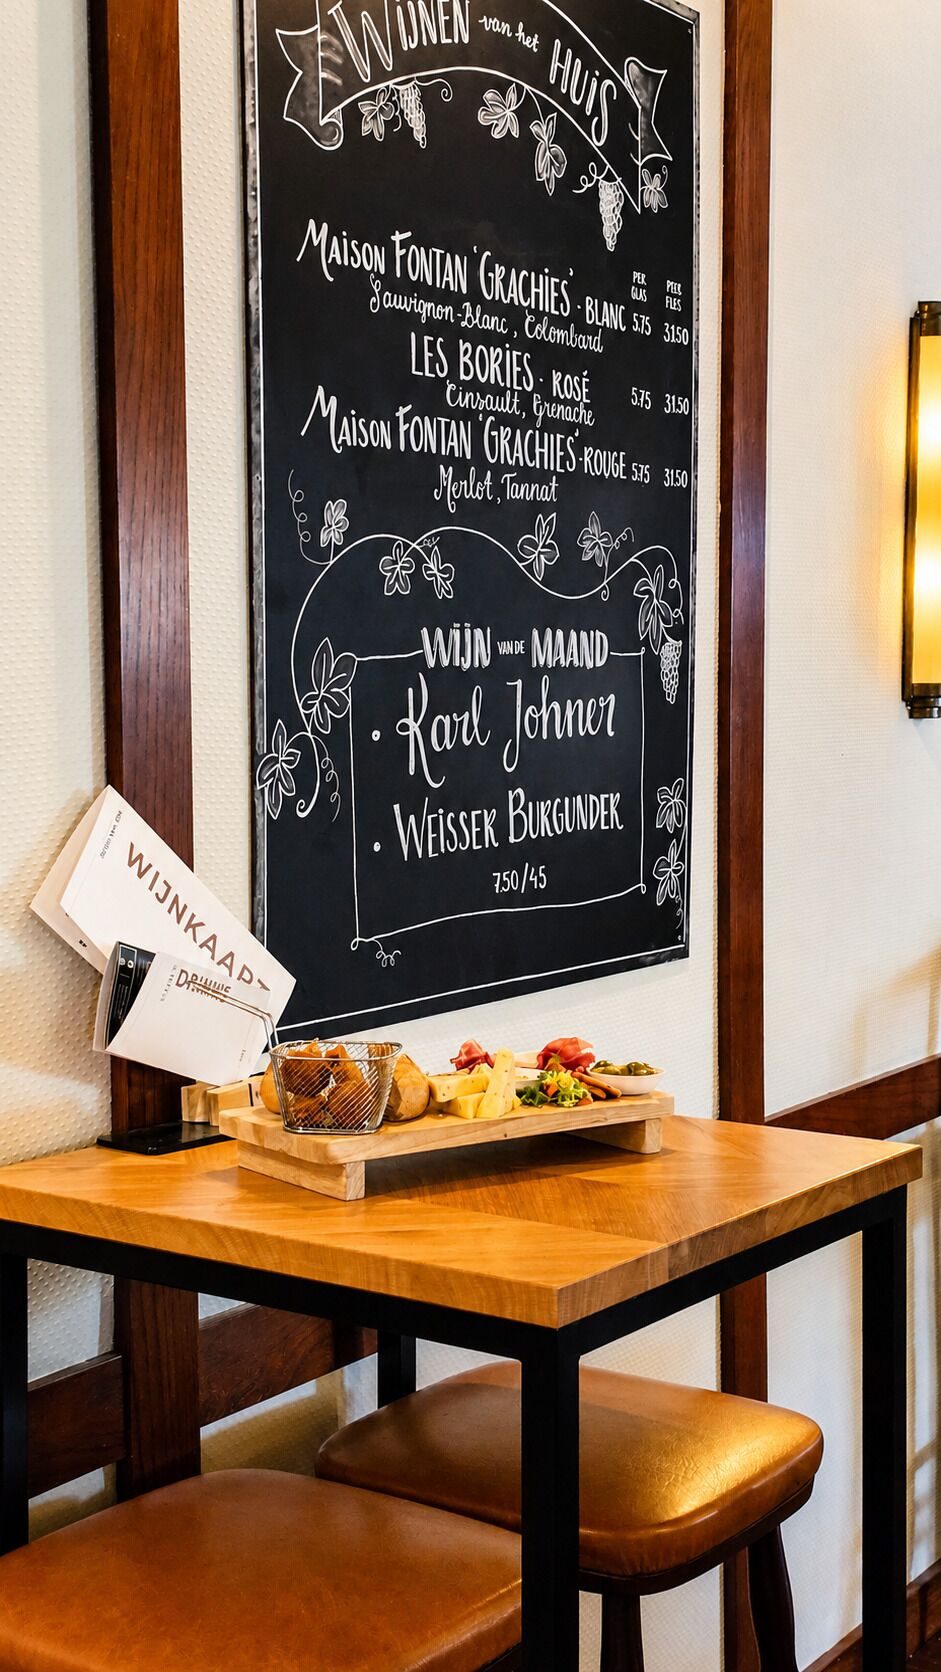 WIJNEN van het HUIS
PER GLAS
PEER FLES
MAISON FONTAN 'GRACHIES' - BLANC 5.75 31.50
Sauvignon-Blanc, Colombard
LES BORIES - ROSÉ 5.75 31.50
Cinsault, Grenache
MAISON FONTAN 'GRACHIES' - ROUGE 5.75 31.50
Merlot, Tannat
WIJN VAN DE MAAND
• Karl Johner
• WEISSER BURGUNDER
7.50/45
WIJNKAART